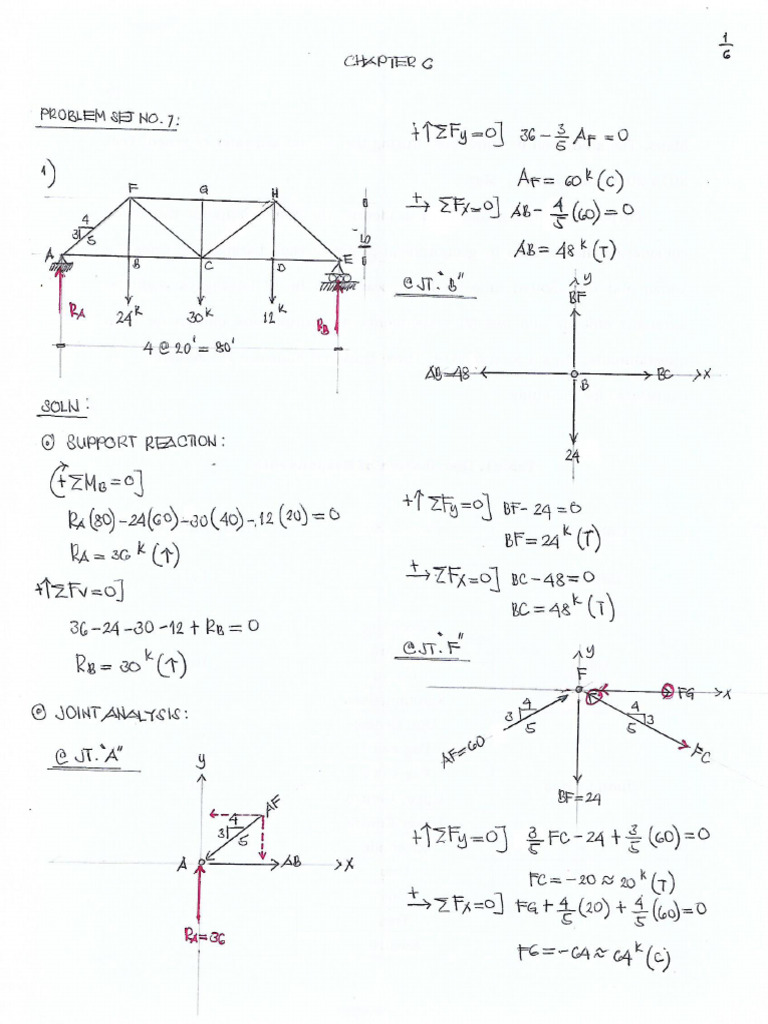 1/6
CHAPTER 6
PROBLEM SET NO. 1:
1)
F G H
4
3 5
A B C D E
15
RA 24k 30k 12k RB
4 @ 20' = 80'
SOLN:
⊙ SUPPORT REACTION:
(+ΣMB=0]
RA(80)-24(60)-30(40)-12(20)=0
RA=36k(↑)
+↑ΣFV=0]
36-24-30-12+RB=0
RB=30k(↑)
⊙ JOINT ANALYSIS:
@ JT. "A"
y
AF
4
3 5
A AB x
RA=36
+↑ΣFy=0] 36-3/5 AF=0
AF=60k(C)
+→ΣFx=0] AB-4/5(60)=0
AB=48k(T)
@ JT. "B"
y
BF
AB=48 BC x
B
24
+↑ΣFy=0] BF-24=0
BF=24k(T)
+→ΣFx=0] BC-48=0
BC=48k(T)
@ JT. "F"
y
F
FG x
4 4
3 5 5 3
AF=60 FC
BF=24
+↑ΣFy=0] 3/5 FC-24+3/5(60)=0
FC=-20≈20k(T)
+→ΣFx=0] FG+4/5(20)+4/5(60)=0
FG=-64≈64k(C)